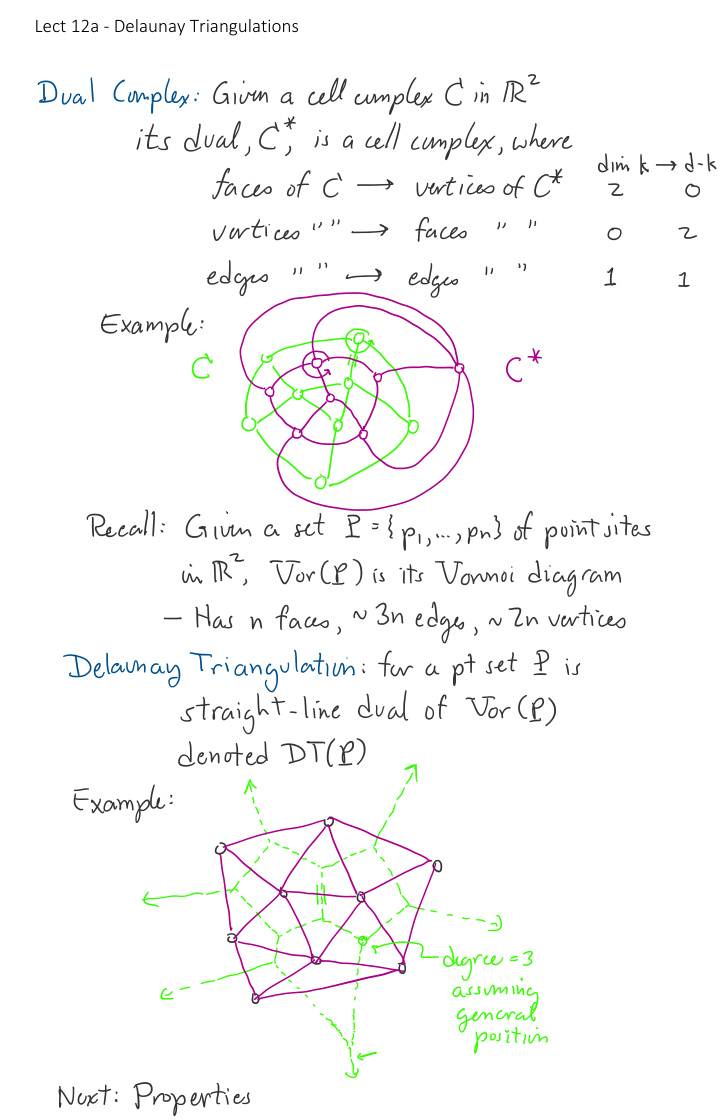 Lect 12a - Delaunay Triangulations
Dual Complex: Given a cell complex C in ℝ²
its dual, C*, is a cell complex, where
dim k → d-k
faces of C → vertices of C* 2 0
vertices " " → faces " " 0 2
edges " " → edges " " 1 1
Example:
C C*
Recall: Given a set P = {p₁,...,pn} of point sites
in ℝ², Vor(P) is its Voronoi diagram
- Has n faces, ~3n edges, ~2n vertices
Delaunay Triangulation: for a pt set P is
straight-line dual of Vor(P)
denoted DT(P)
Example:
degree = 3
assuming
general
position
Next: Properties